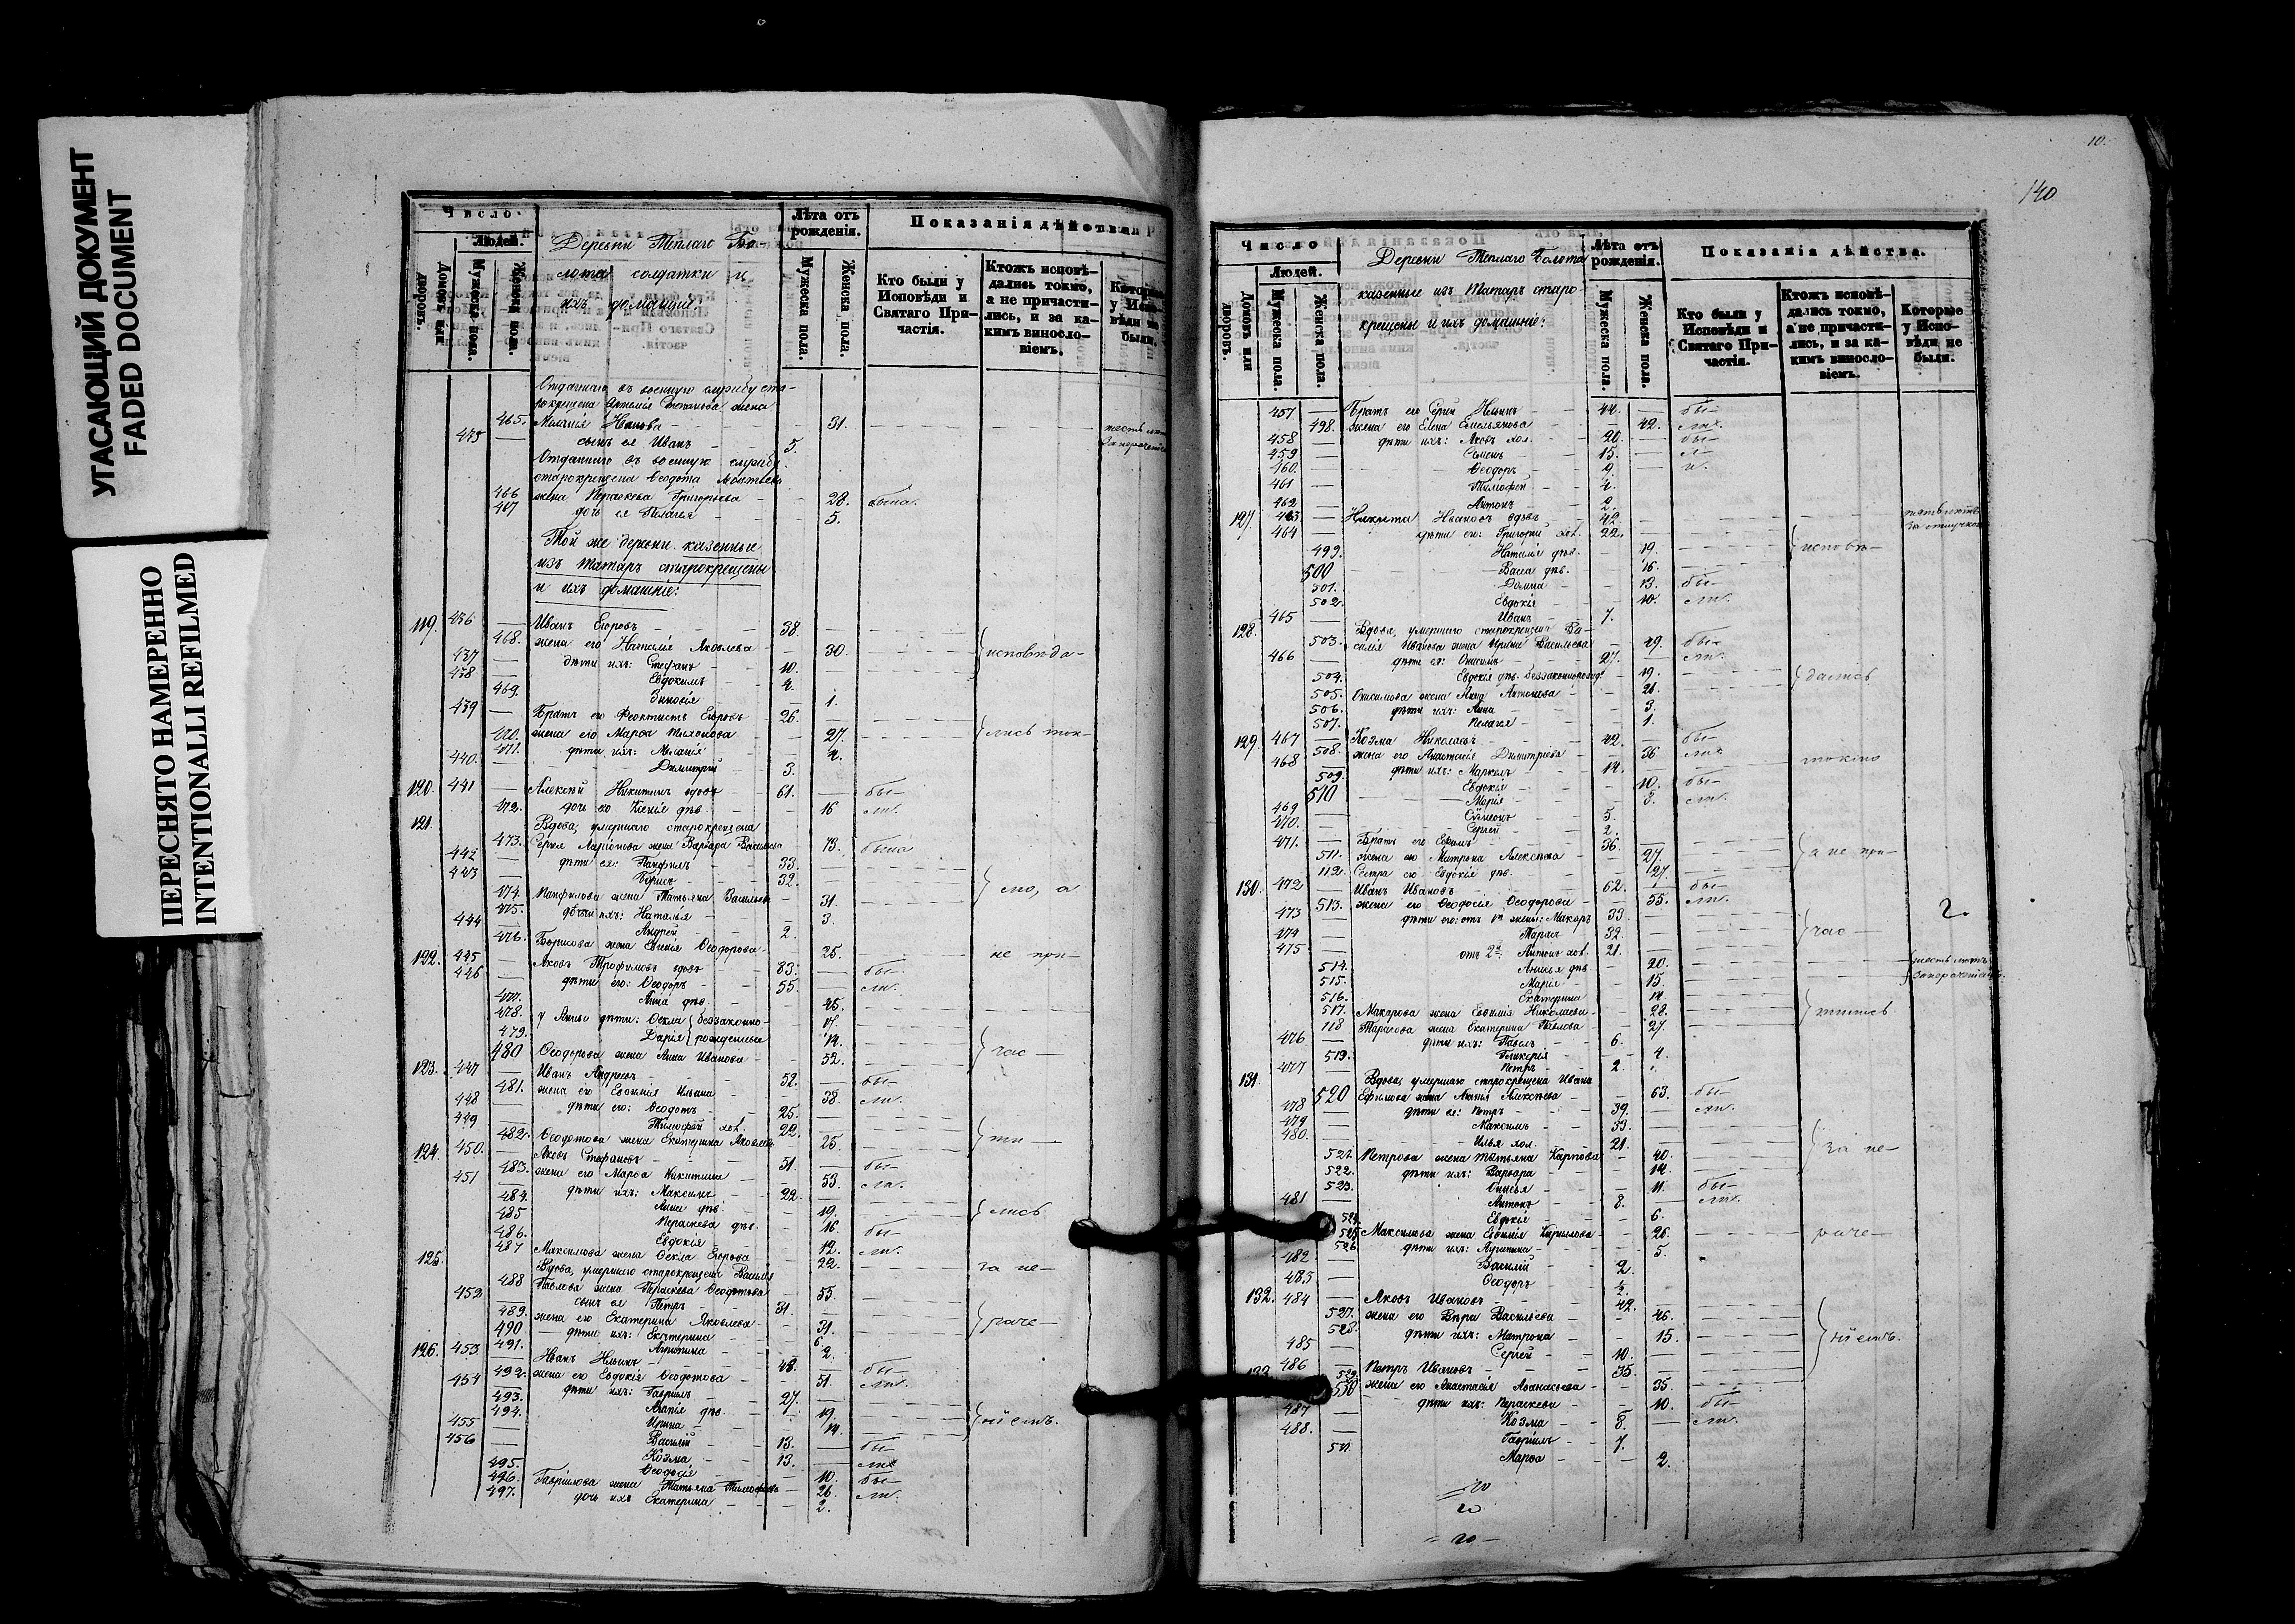 УГАСАЮЩИЙ ДОКУМЕНТ
FADED DOCUMENT
ПЕРЕСНЯТО НАМЕРЕННО
INTENTIONALLI REFILMED
Число
Людей.
Домовъ или дворовъ.
Мужеска пола.
Женска пола.
Деревни Теплаго Бо-
лота солдатки и
ихъ домашніе:
Лѣта отъ рожденія.
Мужеска пола.
Женска пола.
Показанія дѣйства
Кто были у Исповѣди и Святаго Причастія.
Ктожъ исповѣ-
дались токмо,
а не причасти-
лись, и за ка-
кимъ виносло-
віемъ.
Отданнаго въ военную службу ста-
рокрещена Степанова жена
465. Меланія 31.
сынъ ея Иванъ 5.
Отданнаго въ военную службу
старокрещена Ѳеодота
466 жена Параскева Григорьева 28. была.
467 дочь ея Пелагея 5.
Той же деревни казенные
изъ татаръ старокрещены
и ихъ домашніе:
119. 436 Иванъ Егоровъ 38.
468. жена его Наталія Яковлева 30. исповѣда-
437 дѣти ихъ: Стефанъ 10.
438 Евдокимъ
469 Зиновія 1.
439 Братъ его Феоктистъ Егоровъ 26.
470. жена его Марѳа Тихонова 27. лись ток-
471. дѣти ихъ: Меланія
440. Димитрій 3.
120. 441 Алексѣй Никитинъ вдовъ 61. бы-
472. дочь его Ксенія дѣв. 16 ли.
121. Вдова, умершаго старокрещена
473. Сергѣя Ларіонова жена Варвара Васильева 73. была
442 дѣти ея: Панфилъ 33.
443 Борисъ 32.
474. Панфилова жена Татьяна Васильева 31. мо, а
475. дѣти ихъ: Наталья 3.
444 Андрей 2.
476. Борисова жена Ѳеодорова 25. не при-
122. 445 Яковъ Трофимовъ вдовъ 83. бы-
446 дѣти его: Ѳеодоръ 55. ли.
477. Анна дѣв. 45.
478. у Анны дѣти: Ѳекла беззаконно-
479. Дарія рожденные 14.
480 Ѳеодорова жена Анна Иванова 52. час-
123. 447 Иванъ Андреевъ 52. бы-
481. жена его Евѳимія Ильина 38. ли.
448 дѣти его: Ѳеодотъ 25.
449 Тимофей хол. 22.
482. Ѳеодотова жена Екатерина Яковлева 25. ти-
124. 450. Яковъ Стефановъ 51. бы-
483. жена его Марѳа Никитина 53. ли.
451 дѣти ихъ: Максимъ 22.
484. Анна дѣв. 19. лись
485 Параскева дѣв. 16 бы
486. Евдокія 12. ли.
487 Максимова жена Ѳекла Егорова 22. за не-
125. Вдова, умершаго старокрещена Василія
488 Павлова жена Параскева Ѳеодотова 55
452 сынъ ея Петръ 31.
489. жена его Екатерина Яковлева 31. раче-
490 дѣти ихъ: Екатерина 6.
491. Агрипина 2.
126. 453 Иванъ Ильинъ 48. бы-
492. жена его Евдокія Ѳеодотова 51 ли.
454 дѣти ихъ: Гавріилъ 27.
493. Агапія дѣв. 19.
494. Ирина 14. ніемъ.
455 Василій 13. бы-
456 Козма 13. ли
495. Ѳеодосія 10. бы-
496. Гавріилова жена Татьяна 26. ли.
497. дочь ихъ Екатерина 2.
10.
140
Число
Людей.
Домовъ или дворовъ.
Мужеска пола.
Женска пола.
Деревни Теплаго Болота
казенные изъ Татаръ старо-
крещены и ихъ домашніе:
Лѣта отъ рожденія.
Мужеска пола.
Женска пола.
Показанія дѣйства.
Кто были у Исповѣди и Святаго Причастія.
Ктожъ исповѣ-
дались токмо,
а не причасти-
лись, и за ка-
кимъ виносло-
віемъ.
Которые у Испо-
вѣди не были.
457 Братъ его Сергѣй Ильинъ 44. бы-
498. жена его Елена Емельянова 42. ли.
458 дѣти ихъ: Яковъ хол. 20. бы-
459 Семенъ 15. л-
460. Ѳеодоръ 9. и.
461 Тимофей 4.
462 Антонъ 2.
127. 463 Никита Ивановъ вдовъ 42.
464 дѣти его: Григорій хол. 22.
499. Наталія дѣв. 19. исповѣ-
500 Васса дѣв. 16.
501. Домна 13. бы-
502. Евдокія 10. ли.
465 Иванъ 7.
128. Вдова, умершаго старокрещена Ва-
503. силія Иванова жена Ирина Васильева 49. бы-
466 дѣти ея: Онисимъ 27. ли.
504. Евдокія дѣв. беззаконнорожд. 19. дались
505. Онисимова жена Анна Антонова 21.
506. дѣти ихъ: Анна 3.
507. Пелагея 1.
129. 467 Козма Николаевъ 42. бы-
508. жена его Анастасія Димитріева 36 ли.
468 дѣти ихъ: Маркелъ 14. токмо
509. Евдокія 10. бы-
510 Марія 3. ли.
469 Симеонъ 5.
470. Сергѣй 2.
471. Братъ его Евѳимъ 36.
511. жена его Матрона Алексѣева 27. а не при-
112. Сестра его Евдокія дѣв. 27.
130. 472 Иванъ Ивановъ 62. бы-
513. жена его Ѳеодосія Ѳеодорова 55. ли.
473 дѣти его: отъ 1й жены: Макаръ 33.
474 Тарасъ 32. час-
475 отъ 2й: Антонъ хол. 21.
514. Анисья дѣв 20.
515. Марія 15.
516. Екатерина 14.
517. Макарова жена Евѳимія Николаева 28. тились
118 Тарасова жена Екатерина Павлова 27.
476 дѣти ихъ: Павелъ 6.
519. Гликерія 4.
477 Петръ 2.
131. Вдова, умершаго старокрещена Ивана
520 Ефимова жена Агапья Алексѣева 63. бы-
478 дѣти ея: Петръ 39. ли.
479 Максимъ 33.
480. Илья хол. 21.
521. Петрова жена Татьяна Карпова 40. за не-
522. дѣти ихъ: Варвара 14.
523. Анисья 11. бы-
481 Антонъ 8. ли.
524 Евдокія 6.
525 Максимова жена Евѳимія Кирилова 26. раче-
526 дѣти ихъ: 5.
482 Василій 2.
483 Ѳеодоръ
132. 484 Яковъ Ивановъ 42.
527. жена его Вѣра Васильева 46.
528. дѣти ихъ: Матрона 15. ніемъ.
485 Сергѣй 10.
133 486 Петръ Ивановъ 35.
529 530 жена его Анастасія Аѳанасьева 35.
дѣти ихъ: Параскева 10. бы-
487 Козма 8. ли.
488. Гавріилъ 7.
531. Марѳа 2.